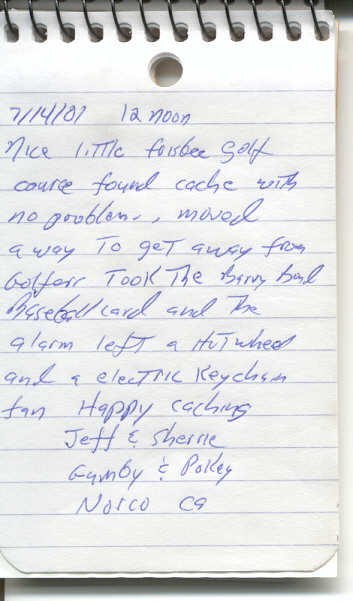 7/14/01 12 noon
Nice little forsbee Golf
course found cache with
no problem.. moved
away To get away from
Golferr Took The Barry Bond
Baseball card and The
alarm left a HoTwheel
and a electric Keychain
fan Happy caching
Jeff & Sherrie
Gumby & Pokey
Norco ca